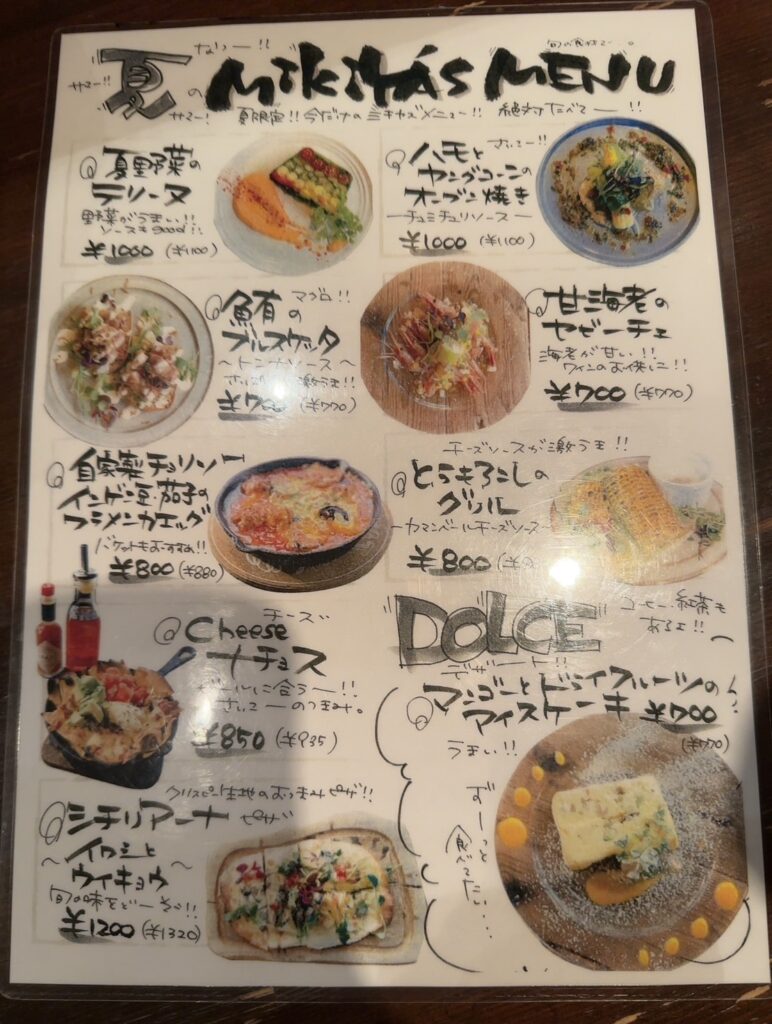 なつー!!
サマー!!
夏の
サマー!
MiKiYA's MENU
旬の食材で~。
夏限定!!今だけのミキヤズメニュー!!絶対たべてー!!
夏野菜の
テリーヌ
野菜がうまい!!
ソースもgood!!
¥1000(¥1100)
さいこー!!
ハモと
ヤングコーンの
オーブン焼き
―チュミチュリソース―
¥1000(¥1100)
鮪の
マグロ!!
ブルスケッタ
~トンナソース~
激うま!!
¥700(¥770)
甘海老の
セビーチェ
海老が甘い!!
ワインのお供に!!
¥700(¥770)
自家製チョリソー
インゲン豆茄子の
フラメンカエッグ
バケットもおすすめ!!
¥800(¥880)
チーズソースが激うま!!
とうもろこしの
グリル
―カマンベールチーズソース―
¥800
チーズ
Cheese
ナチョス
ビールに合うー!!
さいこーのつまみ。
¥850(¥935)
DOLCE
デザート!!
コーヒー紅茶も
あるよ!!
マンゴーとドライフルーツの
アイスケーキ ¥700
(¥770)
うまい!!
ずーっと
食べてたい...
クリスピー生地のおつまみピザ!!
シチリアーナ
ピザ
~イワシと~
ウイキョウ
旬の味をどーぞ!!
¥1200(¥1320)